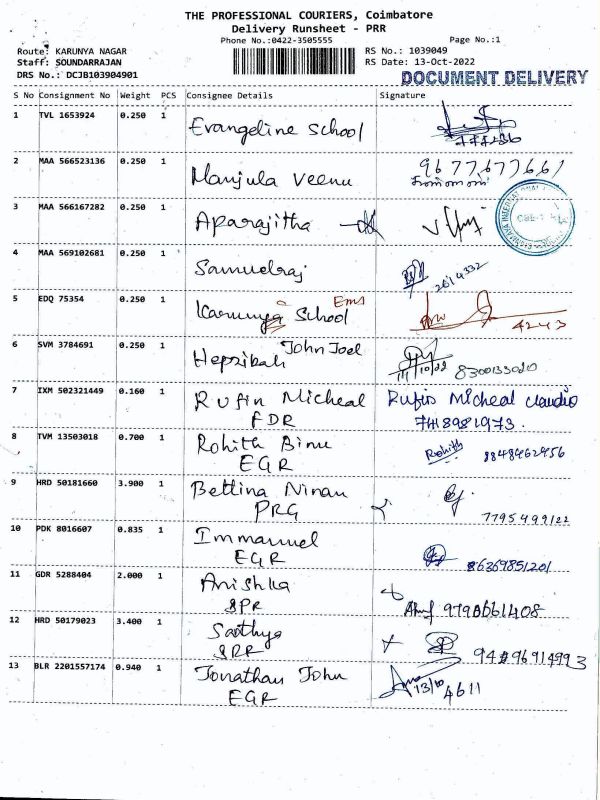 THE PROFESSIONAL COURIERS, Coimbatore
Delivery Runsheet - PRR
Phone No.:0422-3505555 Page No.:1
Route: KARUNYA NAGAR RS No.: 1039049
Staff: SOUNDARRAJAN RS Date: 13-Oct-2022
DRS No.: DCJB103904901 DOCUMENT DELIVERY
S No Consignment No Weight PCS Consignee Details Signature
1 TVL 1653924 0.250 1 Evangeline School
2 MAA 566523136 0.250 1 Manjula Veenu 9677677661
3 MAA 566167282 0.250 1 Aparajitha
4 MAA 569102681 0.250 1 Samuelraj
5 EDQ 75354 0.250 1 Karunya School Ems 4243
6 SVM 3784691 0.250 1 Hepzibah John Joel
7 IXM 502321449 0.160 1 Rufin Micheal Rufin Micheal Claudio
FDR 7418981973.
8 TVM 13503018 0.700 1 Rohith Binu Rohith 8848462956
EGR
9 HRD 50181660 3.900 1 Bettina Ninan
PRG 7795499122
10 PDK 8016607 0.835 1 Immanuel
EGR 86369851201
11 GDR 5288404 2.000 1 Anishka
SPR
12 HRD 50179023 3.400 1 Sathya
SRR
13 BLR 2201557174 0.940 1 Jonathan John 13/10 4611
EGR